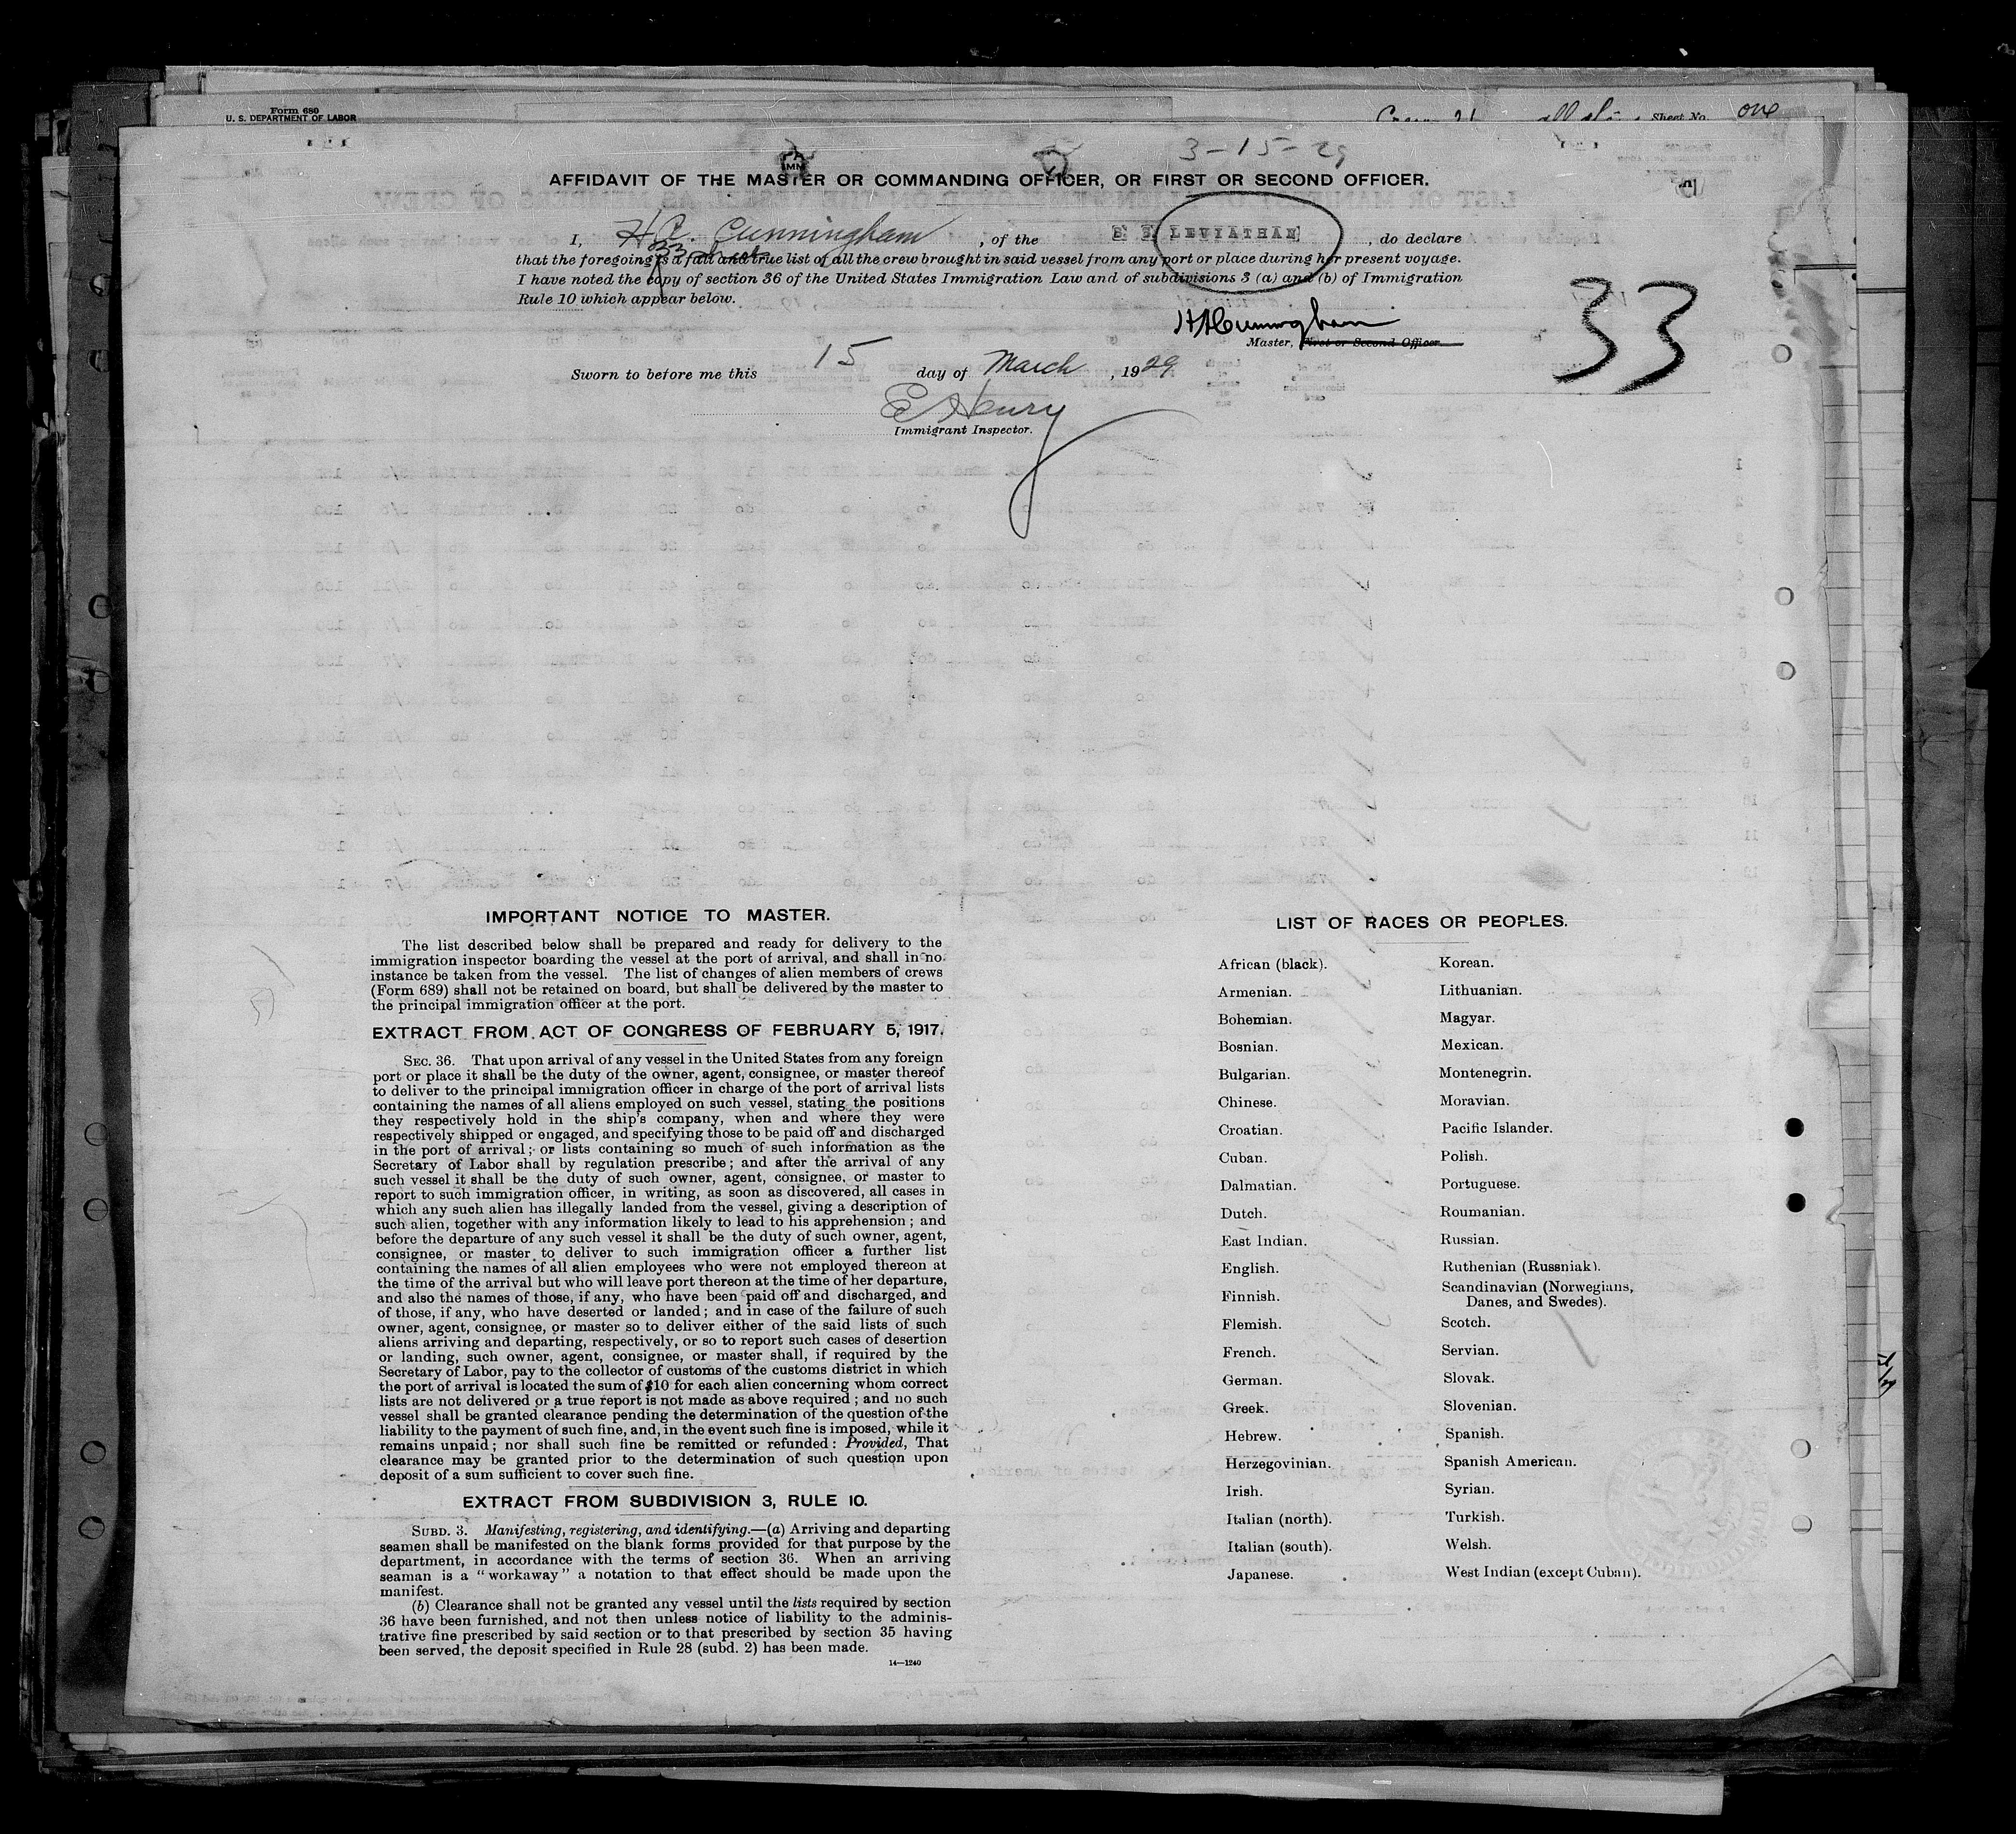 Form 689
U. S. DEPARTMENT OF LABOR
Sheet No. one
3-15-29
AFFIDAVIT OF THE MASTER OR COMMANDING OFFICER, OR FIRST OR SECOND OFFICER.
I, H A. Cunningham, of the S S LEVIATHAN, do declare
33 sheets
that the foregoing is a full and true list of all the crew brought in said vessel from any port or place during her present voyage.
I have noted the copy of section 36 of the United States Immigration Law and of subdivisions 3 (a) and (b) of Immigration
Rule 10 which appear below.
33
HACunningham
Master, First or Second Officer.
Sworn to before me this 15 day of March, 1929
E Henry
Immigrant Inspector.
IMPORTANT NOTICE TO MASTER.
The list described below shall be prepared and ready for delivery to the
immigration inspector boarding the vessel at the port of arrival, and shall in no
instance be taken from the vessel. The list of changes of alien members of crews
(Form 689) shall not be retained on board, but shall be delivered by the master to
the principal immigration officer at the port.
EXTRACT FROM ACT OF CONGRESS OF FEBRUARY 5, 1917.
SEC. 36. That upon arrival of any vessel in the United States from any foreign
port or place it shall be the duty of the owner, agent, consignee, or master thereof
to deliver to the principal immigration officer in charge of the port of arrival lists
containing the names of all aliens employed on such vessel, stating the positions
they respectively hold in the ship's company, when and where they were
respectively shipped or engaged, and specifying those to be paid off and discharged
in the port of arrival; or lists containing so much of such information as the
Secretary of Labor shall by regulation prescribe; and after the arrival of any
such vessel it shall be the duty of such owner, agent, consignee, or master to
report to such immigration officer, in writing, as soon as discovered, all cases in
which any such alien has illegally landed from the vessel, giving a description of
such alien, together with any information likely to lead to his apprehension; and
before the departure of any such vessel it shall be the duty of such owner, agent,
consignee, or master to deliver to such immigration officer a further list
containing the names of all alien employees who were not employed thereon at
the time of the arrival but who will leave port thereon at the time of her departure,
and also the names of those, if any, who have been paid off and discharged, and
of those, if any, who have deserted or landed; and in case of the failure of such
owner, agent, consignee, or master so to deliver either of the said lists of such
aliens arriving and departing, respectively, or so to report such cases of desertion
or landing, such owner, agent, consignee, or master shall, if required by the
Secretary of Labor, pay to the collector of customs of the customs district in which
the port of arrival is located the sum of $10 for each alien concerning whom correct
lists are not delivered or a true report is not made as above required; and no such
vessel shall be granted clearance pending the determination of the question of the
liability to the payment of such fine, and, in the event such fine is imposed, while it
remains unpaid; nor shall such fine be remitted or refunded: Provided, That
clearance may be granted prior to the determination of such question upon
deposit of a sum sufficient to cover such fine.
EXTRACT FROM SUBDIVISION 3, RULE 10.
SUBD. 3. Manifesting, registering, and identifying.—(a) Arriving and departing
seamen shall be manifested on the blank forms provided for that purpose by the
department, in accordance with the terms of section 36. When an arriving
seaman is a "workaway" a notation to that effect should be made upon the
manifest.
(b) Clearance shall not be granted any vessel until the lists required by section
36 have been furnished, and not then unless notice of liability to the adminis-
trative fine prescribed by said section or to that prescribed by section 35 having
been served, the deposit specified in Rule 28 (subd. 2) has been made.
14—1240
LIST OF RACES OR PEOPLES.
African (black).
Armenian.
Bohemian.
Bosnian.
Bulgarian.
Chinese.
Croatian.
Cuban.
Dalmatian.
Dutch.
East Indian.
English.
Finnish.
Flemish.
French.
German.
Greek.
Hebrew.
Herzegovinian.
Irish.
Italian (north).
Italian (south).
Japanese.
Korean.
Lithuanian.
Magyar.
Mexican.
Montenegrin.
Moravian.
Pacific Islander.
Polish.
Portuguese.
Roumanian.
Russian.
Ruthenian (Russniak).
Scandinavian (Norwegians,
Danes, and Swedes).
Scotch.
Servian.
Slovak.
Slovenian.
Spanish.
Spanish American.
Syrian.
Turkish.
Welsh.
West Indian (except Cuban).